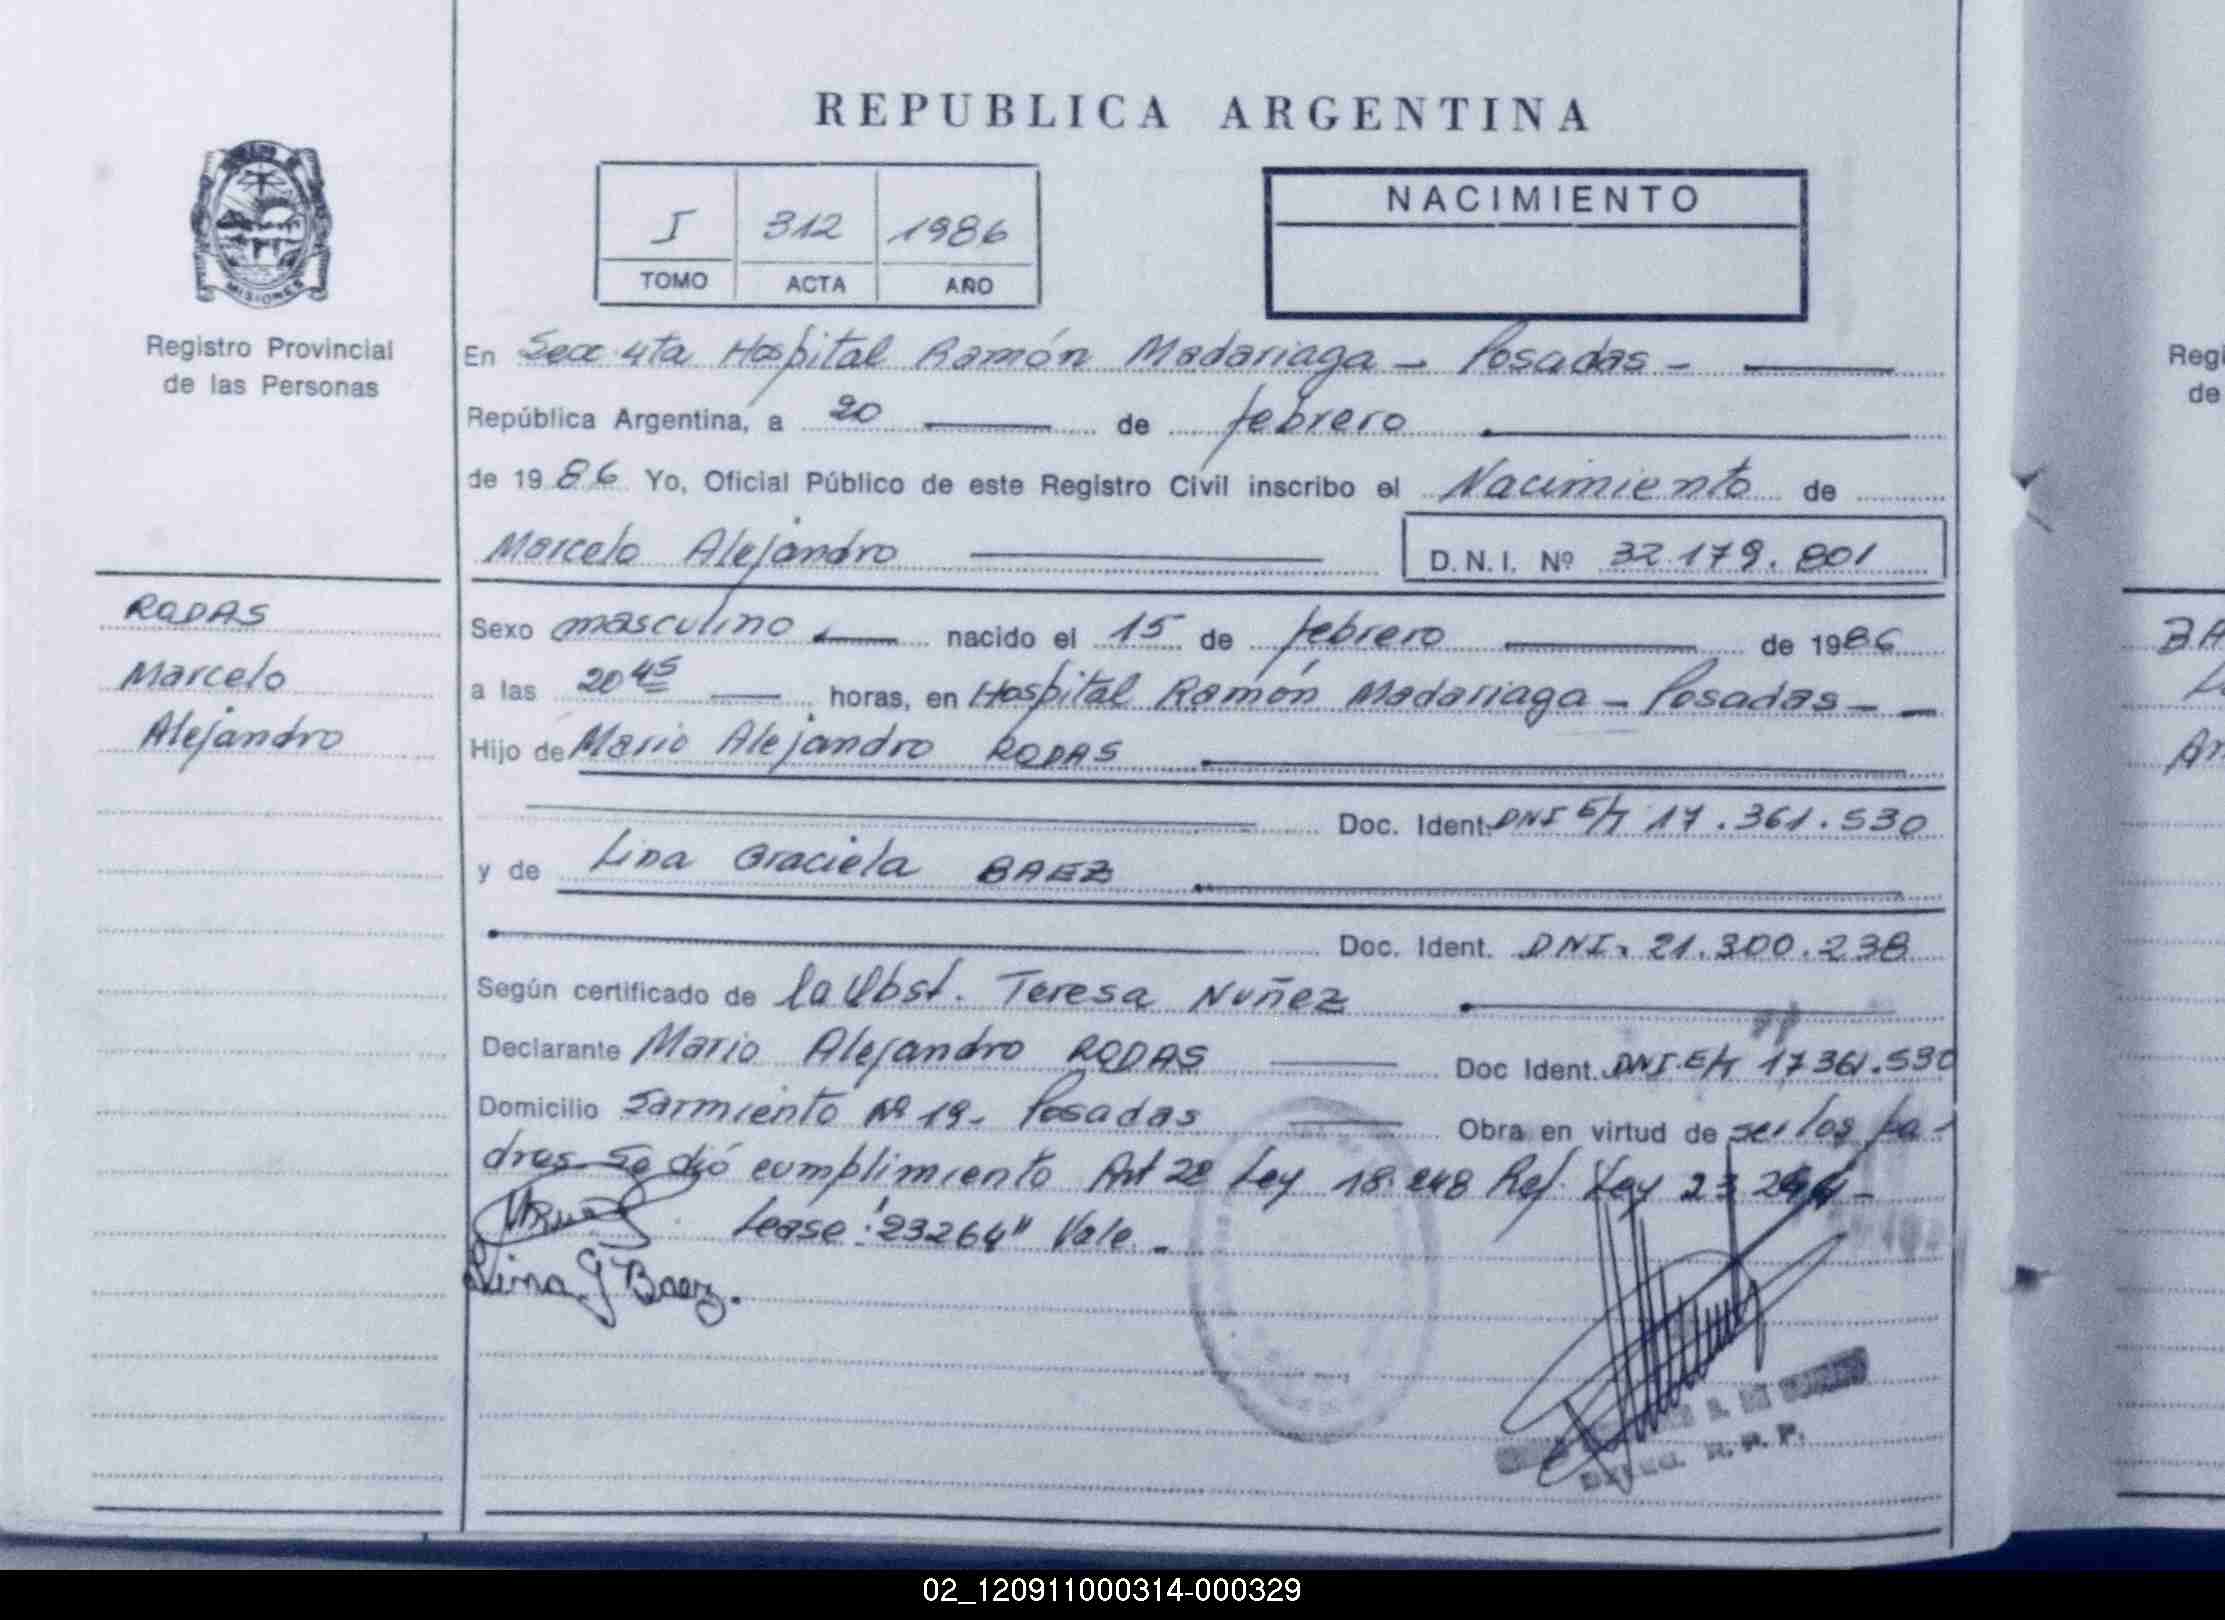 REPUBLICA ARGENTINA
MISIONES
Registro Provincial
de las Personas
I 312 1986
TOMO ACTA AÑO
NACIMIENTO
En Secc 4ta Hospital Ramón Madariaga - Posadas -
República Argentina, a 20 de febrero
de 1986 Yo, Oficial Público de este Registro Civil inscribo el Nacimiento de
Marcelo Alejandro D.N.I. Nº 32.179.801
RODAS
Marcelo
Alejandro
Sexo masculino nacido el 15 de febrero de 1986
a las 20 45 horas, en Hospital Ramón Madariaga - Posadas -
Hijo de Mario Alejandro RODAS
Doc. Ident. DNI E/T 17.361.530
y de Lina Graciela BAEZ
Doc. Ident. DNI. 21.300.238
Según certificado de la Obst. Teresa Nuñez
Declarante Mario Alejandro RODAS Doc Ident. DNI. E/T 17361.530
Domicilio Sarmiento Nº 19- Posadas Obra en virtud de ser los pa-
dres Se dió cumplimiento Art 2º Ley 18.248 Ref. Ley 23
Lease: "23264" Vale.
Lina G Baez.
R. P. P.
Regi
de
BA
An
02_120911000314-000329